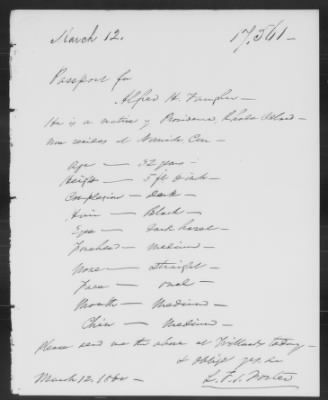 March 12. 17,561 –
Passport for
Alfred H. Vaughn –
He is a native of Providence, Rhode Island –
now resides at Norwich, Con –
Age — 32 years –
Height — 5 ft
Complexion — Dark –
Hair — Black –
Eyes — dark hazel –
Forehead — Medium –
Nose — Straight –
Face — oval –
Mouth — Medium –
Chin — Medium –
Please send me the above at Willards today –
& oblige yrs. &c
March 12, 186
L. F. S. Foster